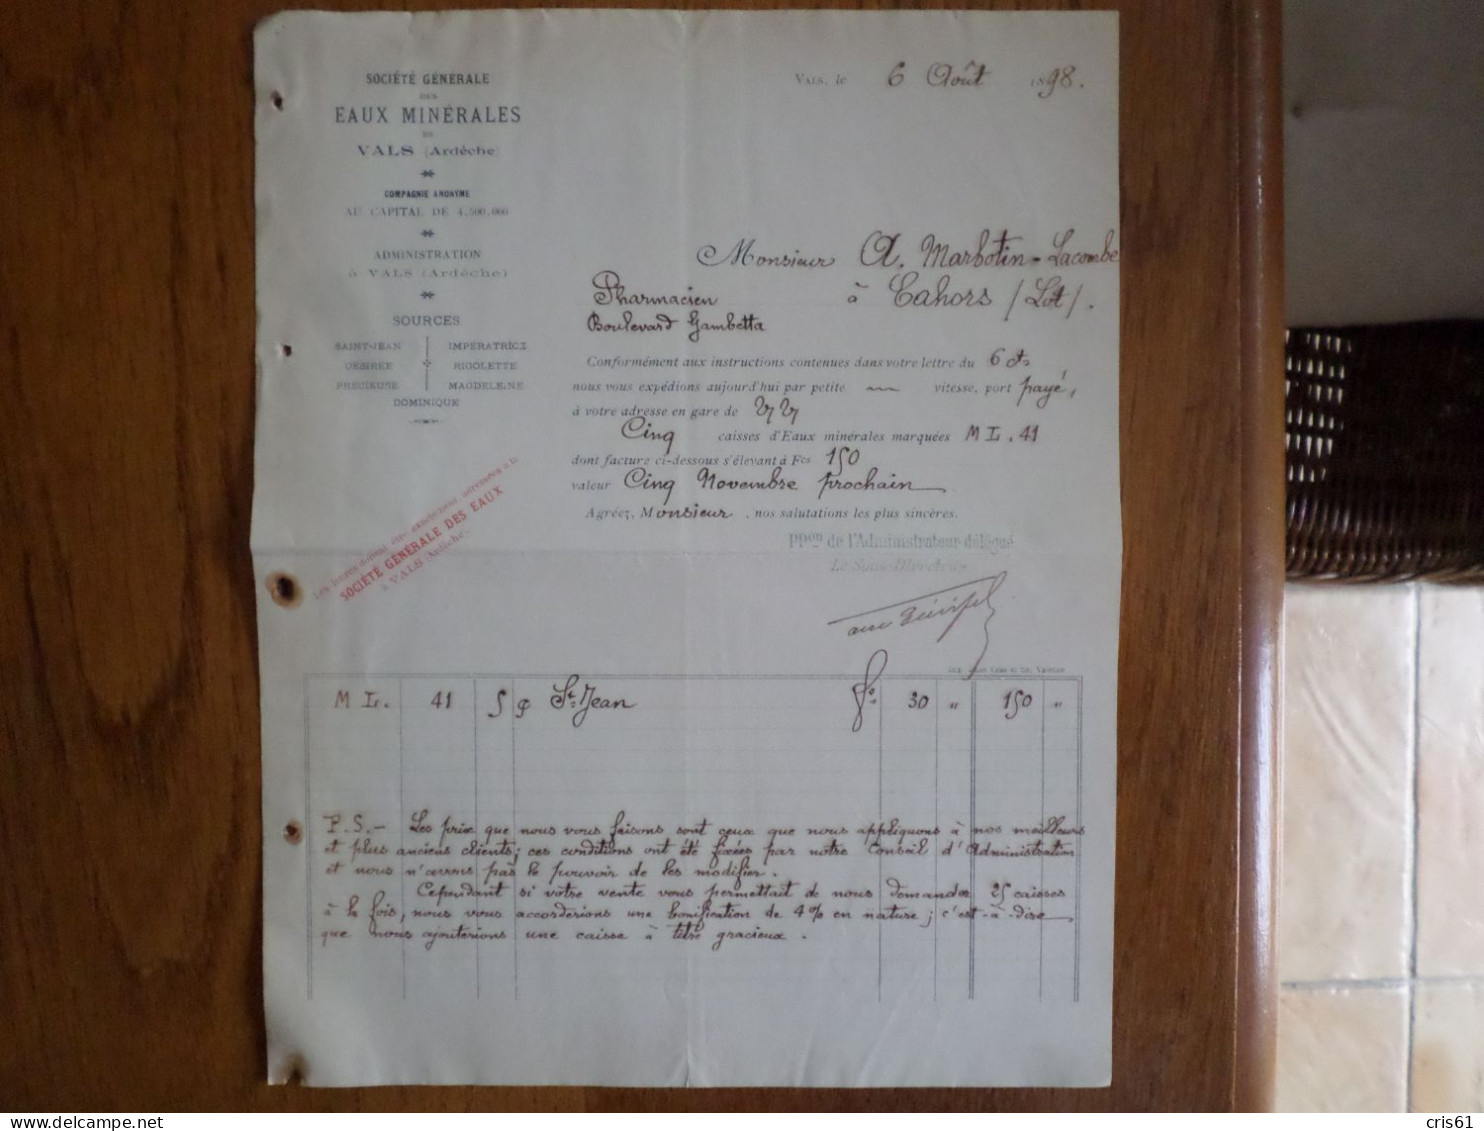 SOCIÉTÉ GÉNÉRALE
DES
EAUX MINÉRALES
DE
VALS (Ardèche)
COMPAGNIE ANONYME
AU CAPITAL DE 4.500.000
ADMINISTRATION
à VALS (Ardèche)
SOURCES
SAINT-JEAN IMPÉRATRICE
DÉSIRÉE RIGOLETTE
PRÉCIEUSE MAGDELEINE
DOMINIQUE
Vals, le 6 Août 1898.
Monsieur A. Marbotin-Lacombe
Pharmacien à Cahors (Lot).
Boulevard Gambetta
Conformément aux instructions contenues dans votre lettre du 6 ct
nous vous expédions aujourd'hui par petite vitesse, port payé,
à votre adresse en gare de
Cinq caisses d'Eaux minérales marquées M L. 41
dont facture ci-dessous s'élevant à Fcs 150
valeur Cinq Novembre prochain
Agréez, Monsieur, nos salutations les plus sincères.
PPon de l'Administrateur délégué
Le Sous-Directeur
Les lettres doivent être exactement adressées à la
SOCIÉTÉ GÉNÉRALE DES EAUX
à VALS (Ardèche)
M L. 41 5 c St. Jean fs. 30 " 150 "
P.S.- Les prix que nous vous faisons sont ceux que nous appliquons à nos meilleurs
et plus anciens clients; ces conditions ont été fixées par notre Conseil d'Administration
et nous n'avons pas le pouvoir de les modifier.
Cependant si votre vente vous permettait de nous demander 25 caisses
à la fois, nous vous accorderions une bonification de 4% en nature; c'est-à-dire
que nous ajouterions une caisse à titre gracieux.
cris61